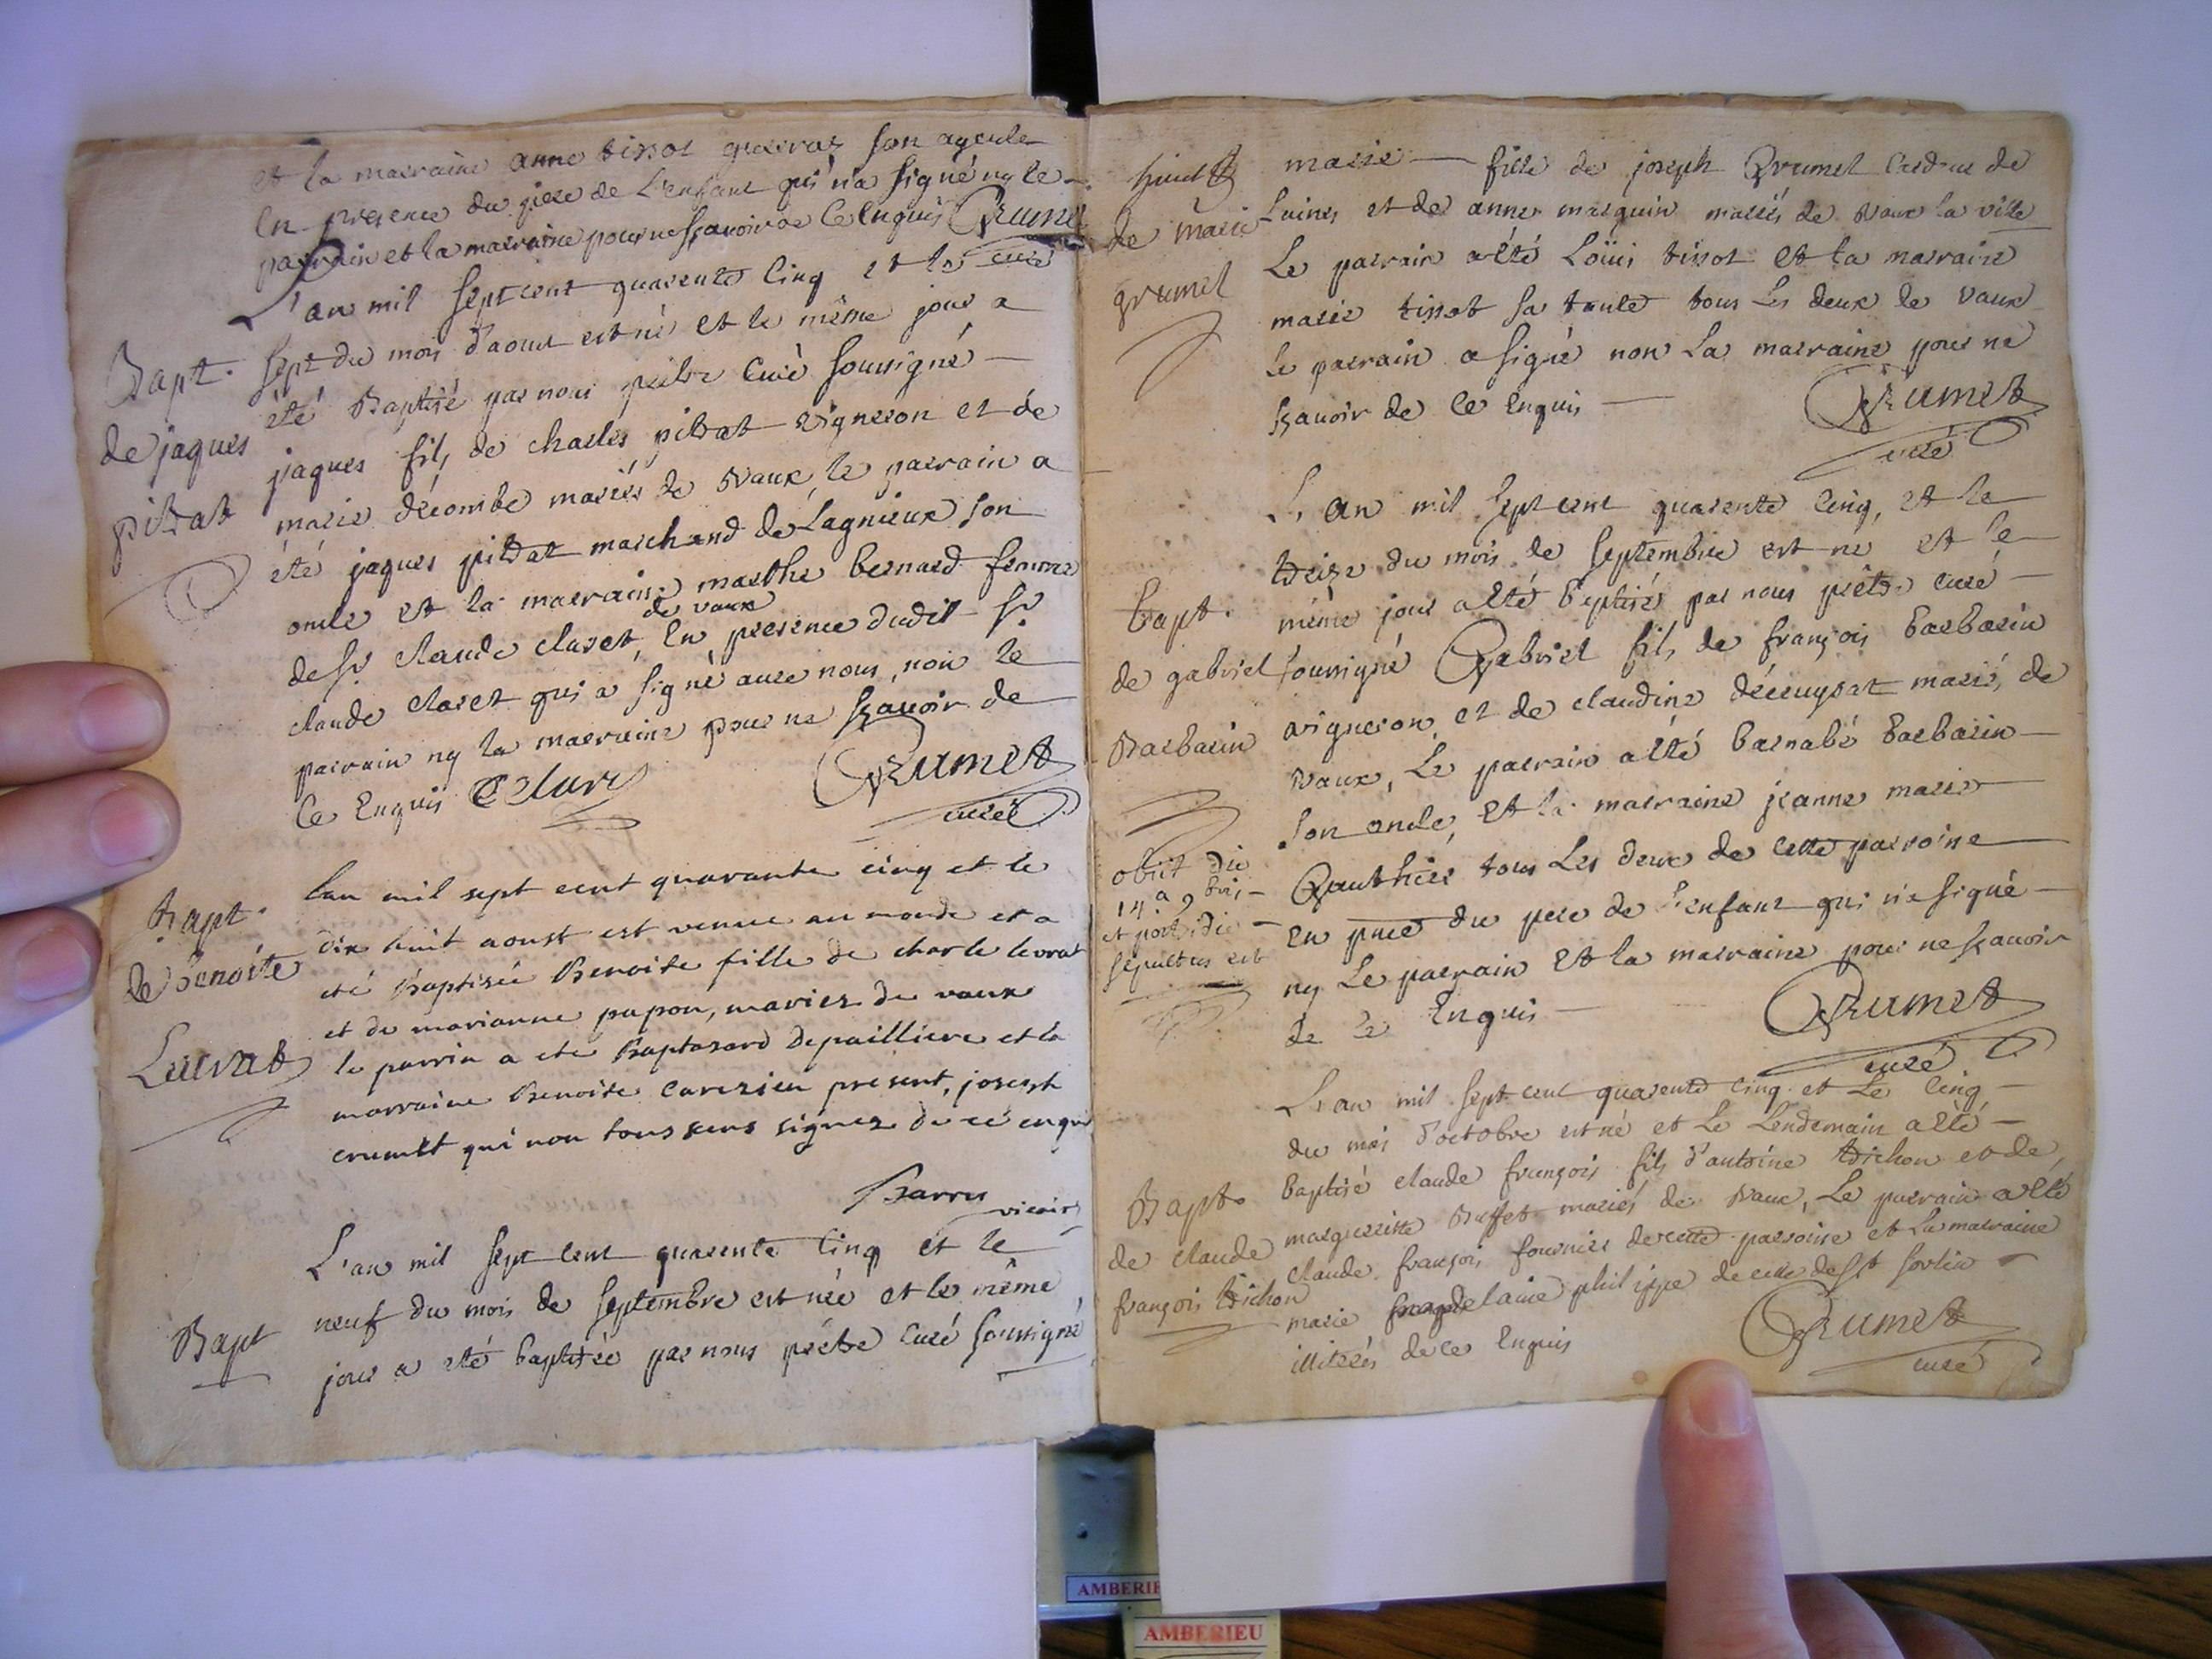 et la marraine anne tissot son ayeule
En presence du pere de L'enfant qui n'a signé ny le
parrain et la marraine pour ne sçavoir de ce Enquis Grumet
curé
L'an mil sept cent quarente Cinq et le
Bapt.
de jaques
pitrat
sept du mois d'aoust est né et le même jour a
été Baptisé par nous prêtre Curé soussigné
jaques fils de charles pitrat vigneron et de
marie décombe mariés de vaux, le parrain a
été jaques pitrat marchand de Lagnieux son
oncle et la marraine marthe bernard femme
de vaux
de sr. claude claret, En presence dudit sr.
claude claret qui a signé avec nous, non le
parrain ny la marraine pour ne sçavoir de
Ce Enquis Grumet
curé
Bapt.
de benoite
Leuvrat
Lan mil sept cent quarante cinq et le
dix huit aoust est venue au monde et a
eté Baptisée Benoite fille de charle levrat
et de marianne papon, mariez de vaux
le parrin a ete Baptazard Depailliere et la
marraine Benoite present, joseph
crumet qui non tous seus signez de ce enqui
Barru
vicaire
Bapt
L'an mil sept cent quarente Cinq et le
neuf du mois de septembre est née et le même
jour a eté baptisée par nous prêtre Curé soussigné
de marie
grumet
marie fille de joseph Grumet Cardeur de
Laines et de anne marguin mariés de vaux la ville
Le parrain a été Loüis tissot et la marraine
marie tissot sa tante tous Les deux de vaux
le parrain a signé non La marraine pour ne
sçavoir de Ce Enquis
Grumet
curé
bapt.
de gabriel
Barbarin
L'an mil sept cent quarente Cinq, et le
treize du mois de septembre est né et le
même jour a été baptisés par nous prêtre curé
soussigné Gabriel fils de françois barbarin
vigneron, et de claudine décruysat mariés de
vaux, Le parrain a été barnabé barbarin
son oncle, et la marraine jeanne marie
Gauthier tous Les deux de cette parroise
En pnce du pere de l'enfant qui n'a signé
ny Le parrain et la marraine pour ne sçavoir
de ce Enquis
Grumet
curé
obiit die
14.a 9bris
et post. die
sepultus est
Bapt.
de claude
françois trichon
L'an mil sept cent quarente Cinq et Le Cinq
du mois d'octobre est né et Le Lendemain a été
baptisé claude françois fils d'antoine trichon et de
marguerite Buffet mariés de vaux, Le parrain a été
claude françois fournier de cette parroise et La marraine
marie magdelaine philippe de celle de st sorlin
illiterés de ce Enquis
Grumet
curé
AMBERIE
AMBERIEU